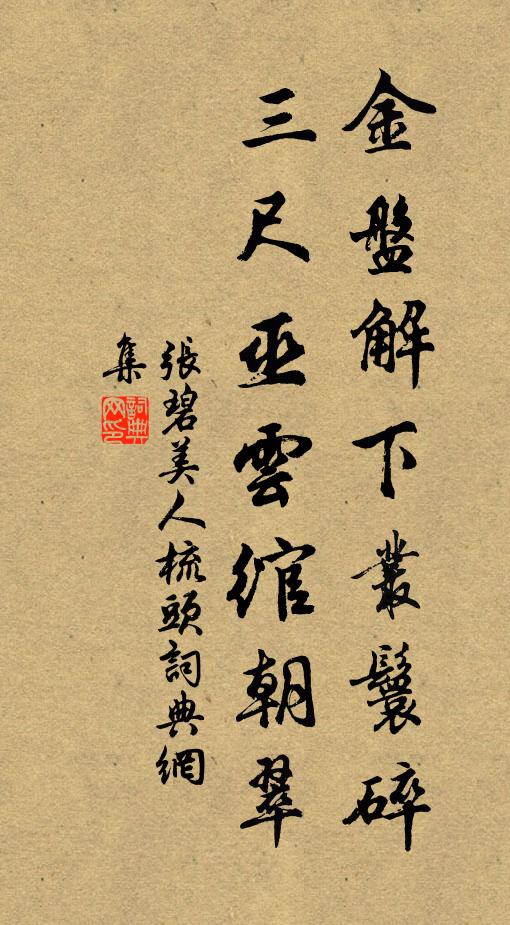 金盤解下叢鬟碎
三尺巫雲綰朝翠
張碧美人梳頭詞典網
集
詞典
网印